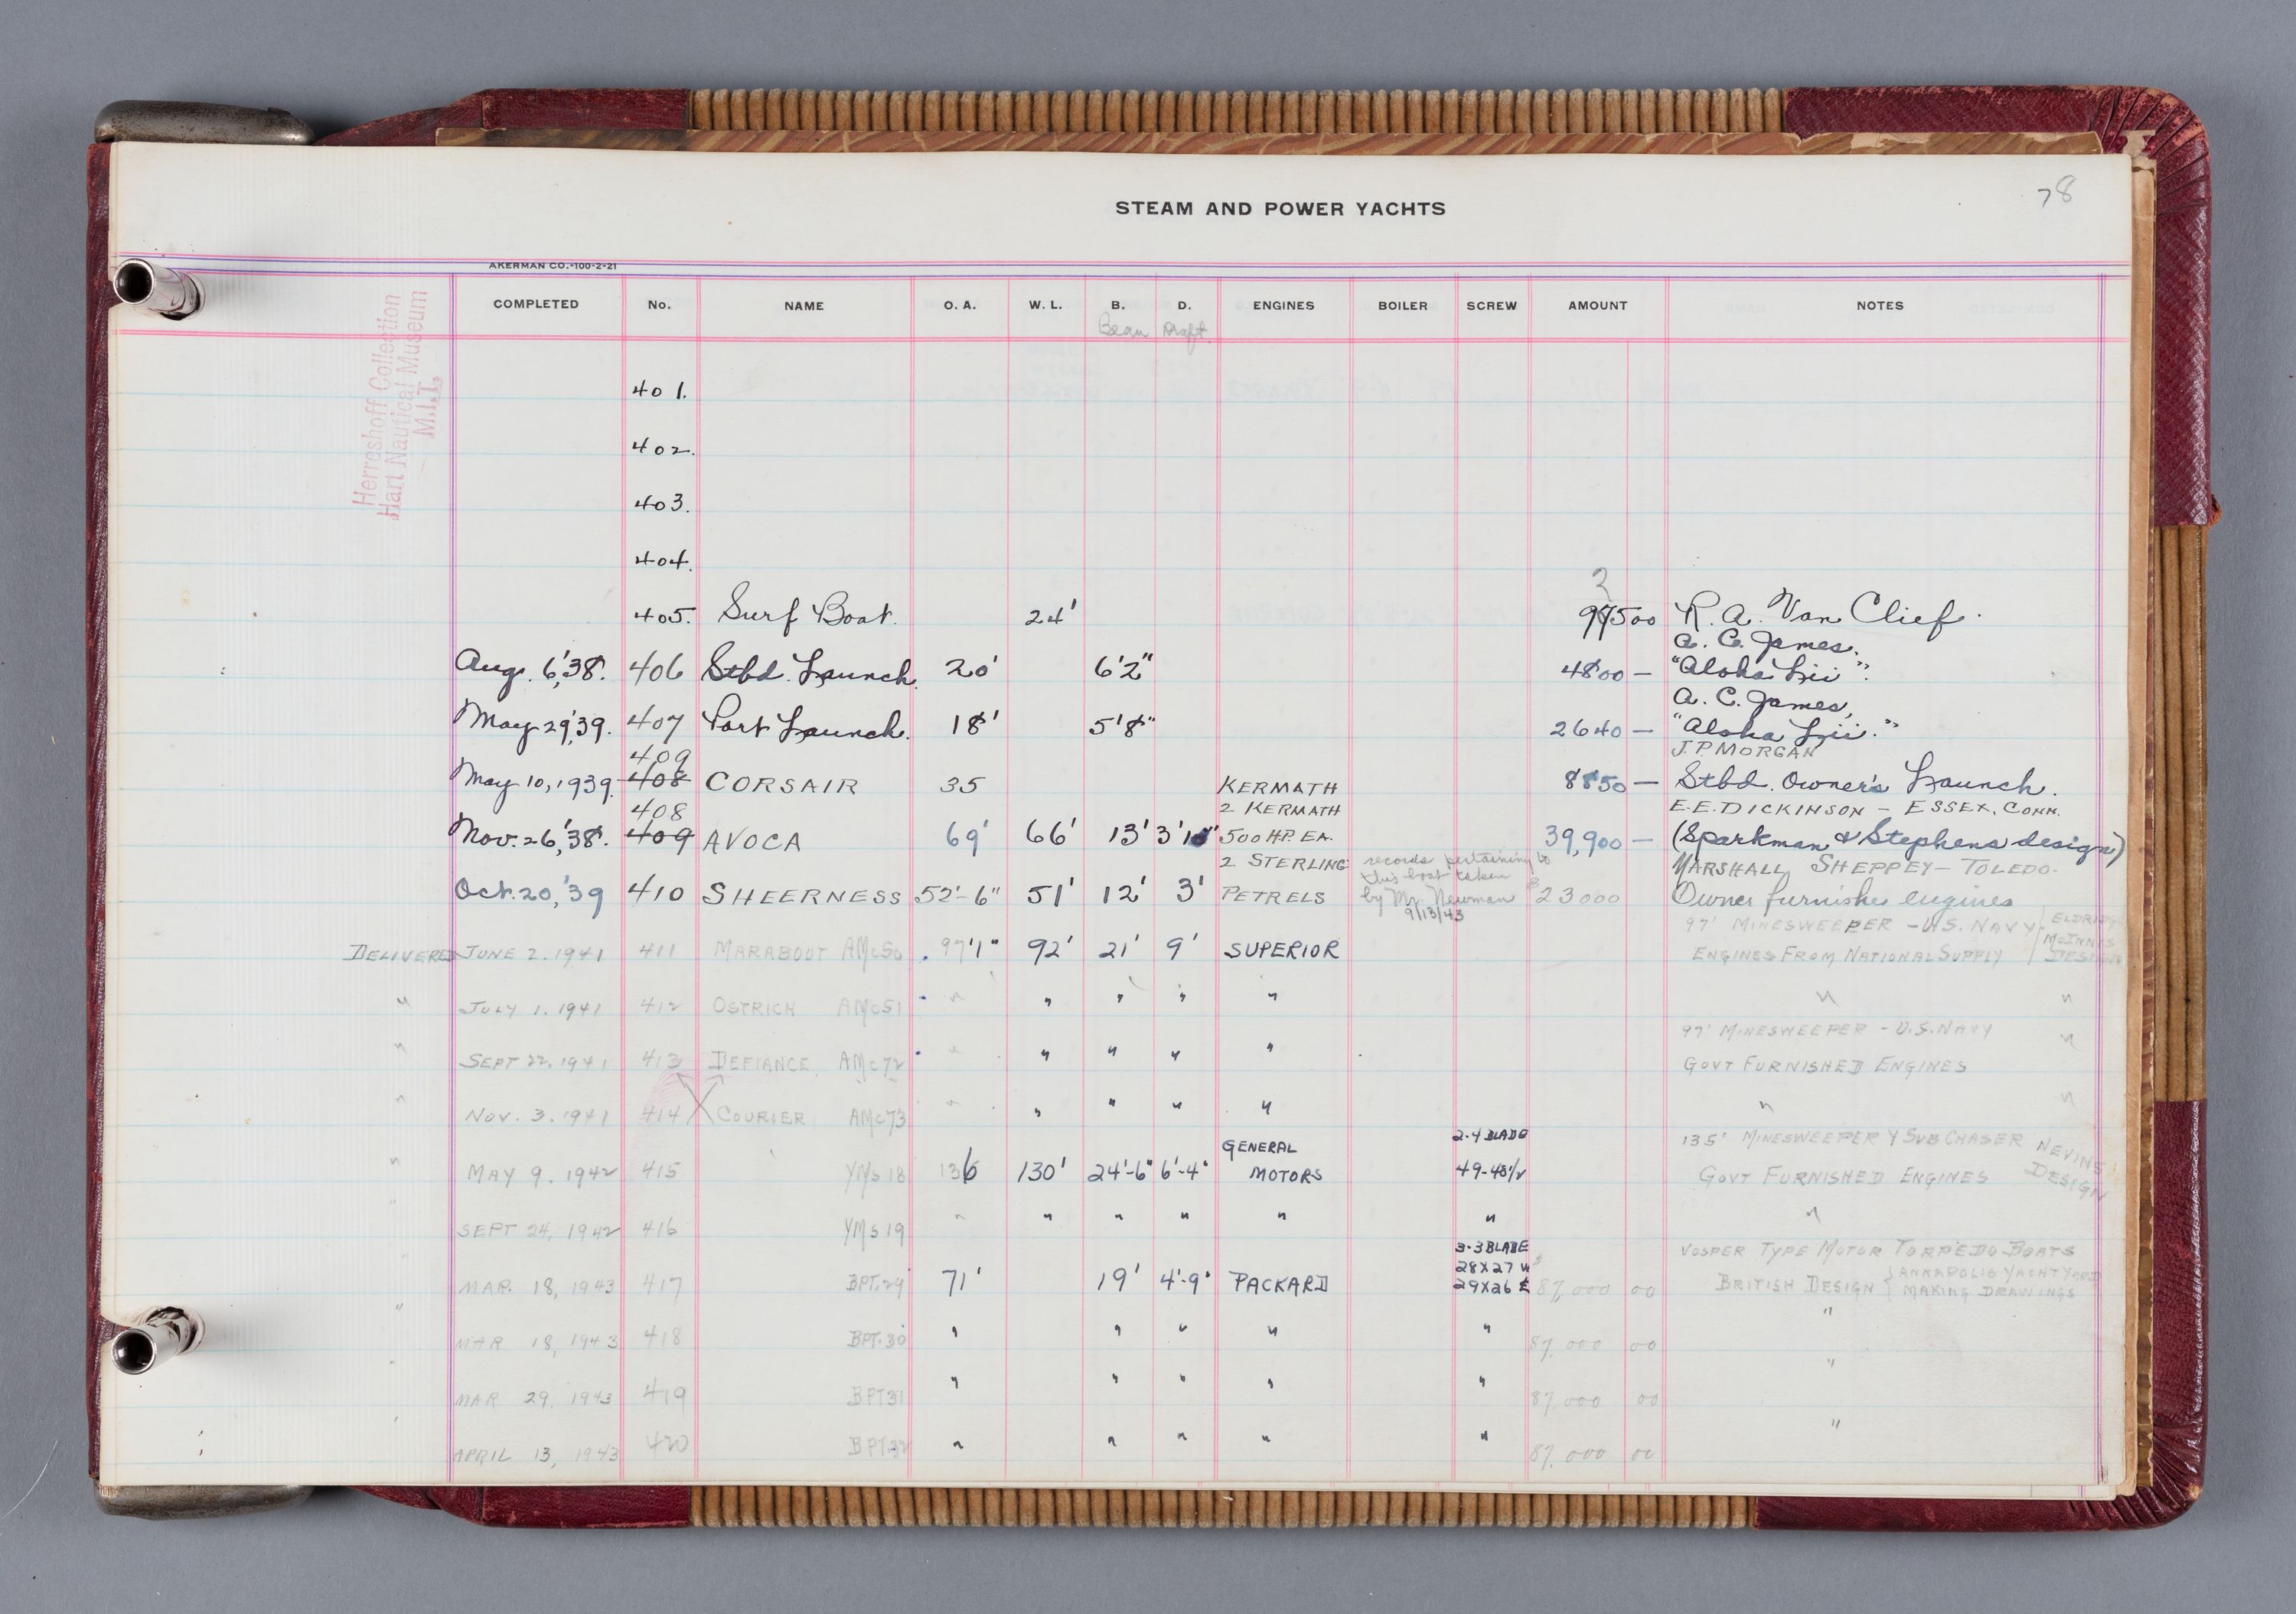 78
STEAM AND POWER YACHTS
AKERMAN CO.-100-2-21
Herreshoff Collection
Hart Nautical Museum
M.I.T.
COMPLETED No. NAME O. A. W. L. B. D. ENGINES BOILER SCREW AMOUNT NOTES
Beam Draft
401.
402.
403.
404.
?
405. Surf Boat. 24' R. A. Van Clief.
A. C. James.
Aug. 6,'38. 406 Stbd. Launch. 20' 6'2" 4800— "Aloha Lii".
A. C. James,
May 29,'39. 407 Port Launch. 18' 5'8" 2640— "Aloha Lii."
409 J. P. MORGAN
May 10, 1939. 408 CORSAIR 35 KERMATH 8850— Stbd. Owner's Launch.
408 2 KERMATH E. E. DICKINSON — ESSEX, CONN.
Nov. 26,'38. 409 AVOCA 69' 66' 13' 500 H.P. EA. 39,900— (Sparkman & Stephens design)
2 STERLING records pertaining to MARSHALL SHEPPEY — TOLEDO.
this boat taken
Oct. 20,'39 410 SHEERNESS 52'-6" 51' 12' 3' PETRELS by Mr. Newman $23000 Owner furnishes engines
9/13/43
97' MINESWEEPER — U.S. NAVY ELDRIDGE
McINNIS
DELIVERED JUNE 2. 1941 411 MARABOUT AMc50 97'1" 92' 21' 9' SUPERIOR ENGINES FROM NATIONAL SUPPLY DESIGN
" JULY 1. 1941 412 OSTRICH AMc51 " " " " " " "
97' MINESWEEPER — U.S. NAVY
" SEPT 22, 1941 413 DEFIANCE AMc72 " " " " " GOVT FURNISHED ENGINES "
" NOV. 3. 1941 414 COURIER AMc73 " " " " " " "
GENERAL 2-4 BLADE 135' MINESWEEPER Y SUB CHASER NEVINS
" MAY 9. 1942 415 YMS 18 136 130' 24'-6" 6'-4" MOTORS 49-48½ GOVT FURNISHED ENGINES DESIGN
" SEPT 24, 1942 416 YMS 19 " " " " " " "
3-3 BLADE VOSPER TYPE MOTOR TORPEDO BOATS
28X27 W ANNAPOLIS YACHT YARD
" MAR. 18, 1943 417 BPT.29 71' 19' 4'-9" PACKARD 29X26 $87,000 00 BRITISH DESIGN MAKING DRAWINGS
" MAR 18, 1943 418 BPT.30 " " " " " 87,000 00 "
" MAR 29, 1943 419 BPT31 " " " " " 87,000 00 "
" APRIL 13, 1943 420 BPT32 " " " " " 87,000 00 "